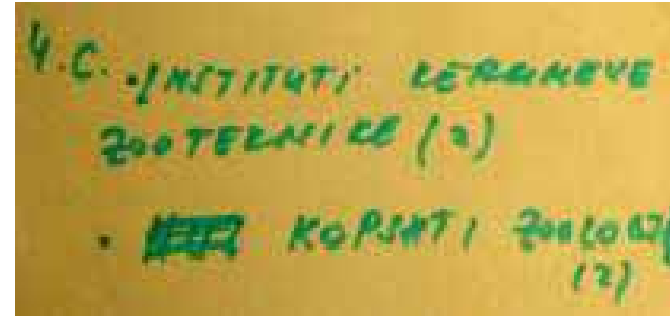 4.C. • INSTITUTI KËRKIMEVE
ZOOTEKNIKE (2)
• KOPSHTI
(2)